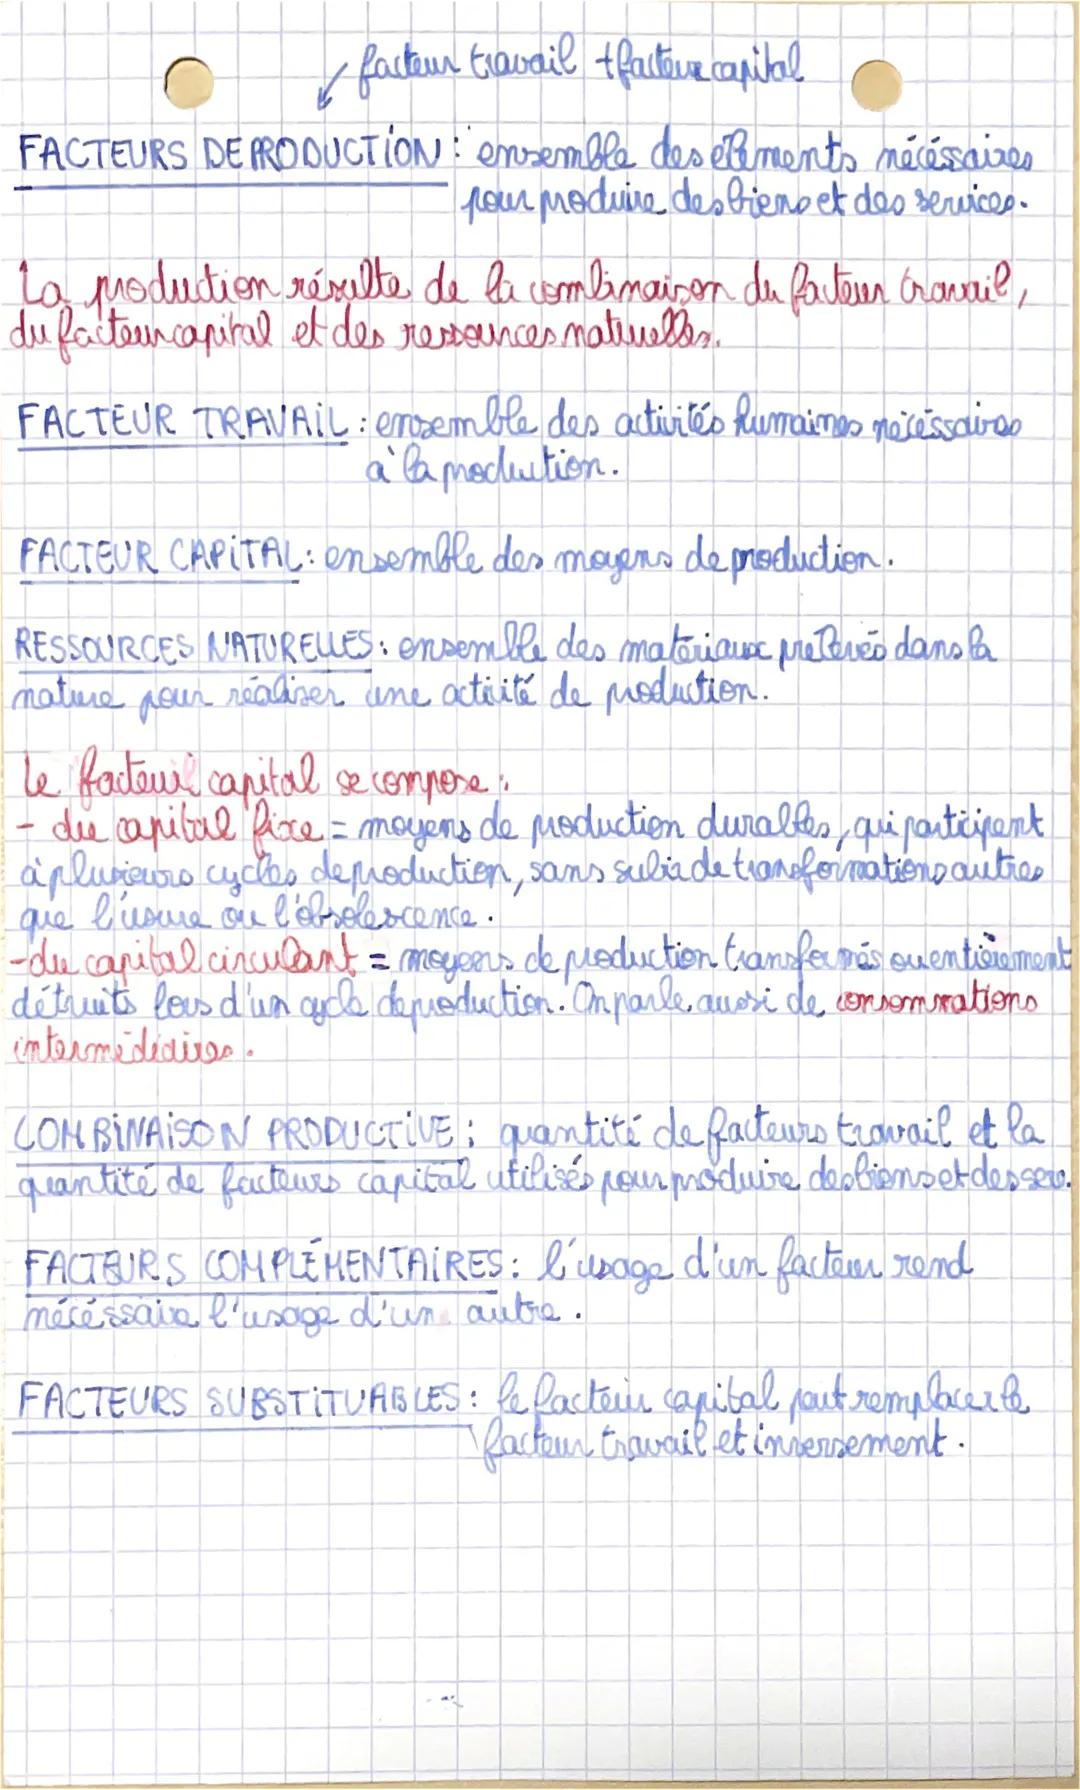 facteur travail + facteur capital
FACTEURS DE PRODUCTION : ensemble des éléments nécéssaires
pour produire des biens et des services.
La production résulte de la combinaison du facteur travail,
du facteur capital et des ressources naturelles.
FACTEUR TRAVAIL : ensemble des activités humaines nécéssaires
à la production.
FACTEUR CAPITAL : ensemble des moyens de production.
RESSOURCES NATURELLES : ensemble des matériaux prélevés dans la
nature pour réaliser une activité de production.
Le facteur capital se compose :
- du capital fixe = moyens de production durables, qui participent
à plusieurs cycles de production, sans subir de transformations autres
que l'usure ou l'obsolescence.
- du capital circulant = moyens de production transformés ou entièrement
détruits lors d'un cycle de production. On parle aussi de consommations
intermédiaires.
COMBINAISON PRODUCTIVE : quantité de facteurs travail et la
quantité de facteurs capital utilisés pour produire des biens et des serv.
FACTEURS COMPLÉMENTAIRES : l'usage d'un facteur rend
nécéssaire l'usage d'un autre.
FACTEURS SUBSTITUABLES : le facteur capital peut remplacer le
facteur travail et inversement.